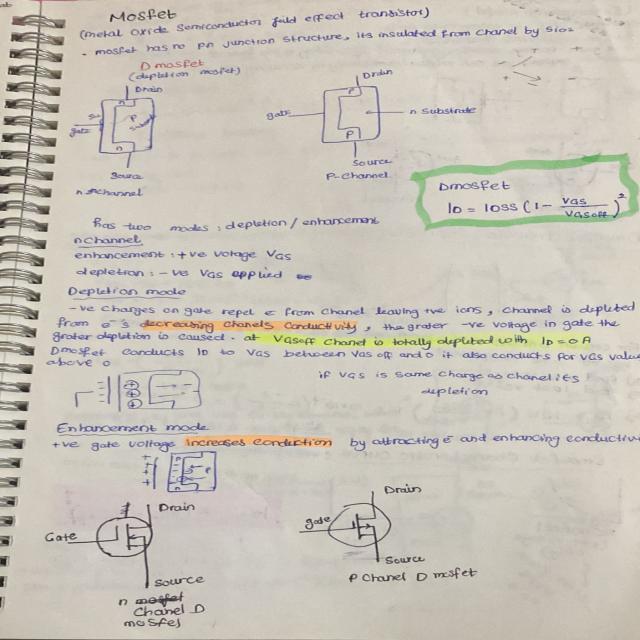 Mosfet
(metal oxide semiconductor feild effect transistor)
- mosfet has no pn junction structure, its insulated from chanel by SiO2
D mosfet
(depletion mosfet)
Drain
n
P
gate
n
Source
n channel
Drain
P
gate
n substrate
P
Source
P-channel
Dmosfet
ID = IDSS (1 - VGS / VGSoff)²
has two modes : depletion / enhancement
n channel
enhancement : +ve votage VGS
depletion : -ve VGS applied
Depletion mode
-ve charges on gate repel e from chanel leaving +ve ions, channel is depleted
from e's decreasing chanels conductivity, the grater -ve voltage in gate the
grater depletion is caused. at VGSoff chanel is totally depleted with ID = 0 A
Dmosfet conducts ID to VGS between VGSoff and 0 it also conducts for VGS value
above 0
if VGS is same charge as chanel its
depletion
Enhancement mode
+ve gate voltage increases conduction by attracting e and enhancing conductive
Drain
Gate
Source
n chanel D
mosfet
Drain
gate
Source
P chanel D mosfet